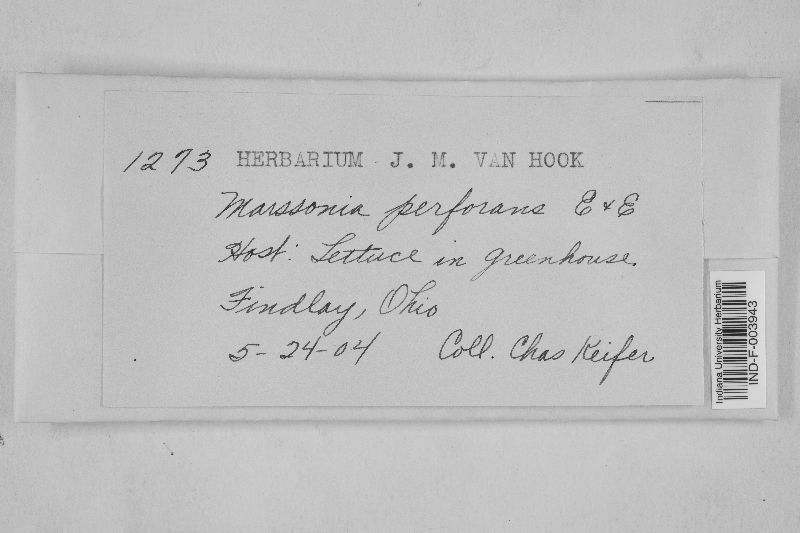 1273 HERBARIUM J. M. VAN HOOK
Marssonia perforans E & E
Host: Lettuce in greenhouse.
Findlay, Ohio
5-24-04 Coll. Chas Keifer
Indiana University Herbarium
IND-F-003943